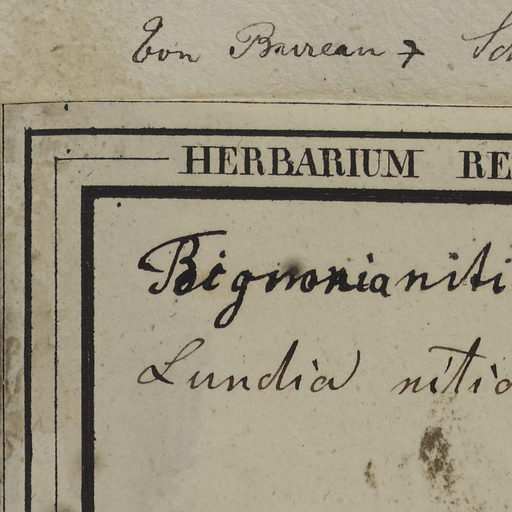 Von Bureau +
HERBARIUM RE
Bignonia niti
Lundia nitid